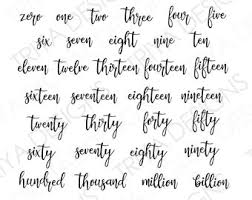 zero one two three four five
six seven eight nine ten
eleven twelve thirteen fourteen fifteen
sixteen seventeen eighteen nineteen
twenty thirty forty fifty
sixty seventy eighty ninety
hundred thousand million billion